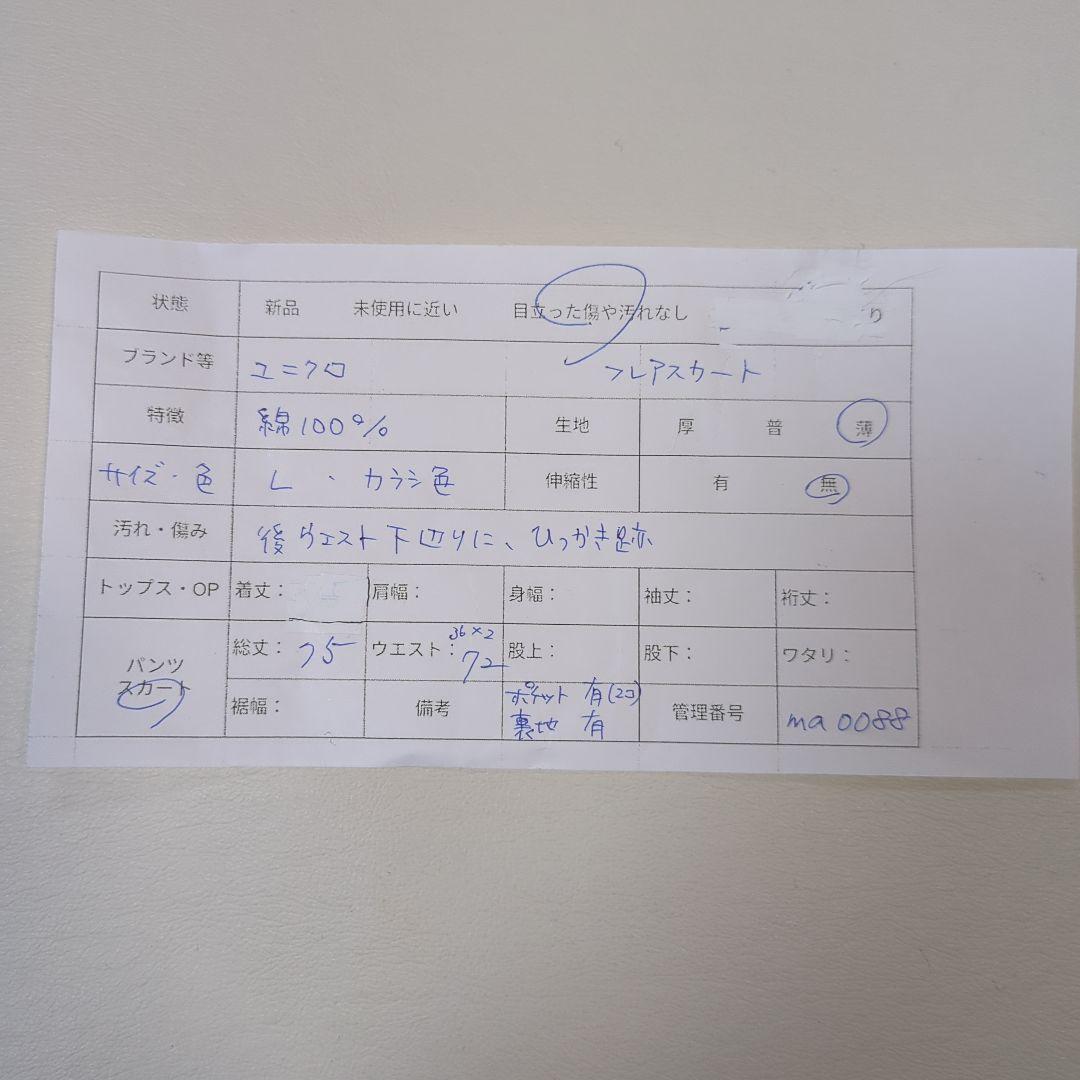 状態 新品 未使用に近い 目立った傷や汚れなし り
ブランド等 ユニクロ フレアスカート
特徴 綿100% 生地 厚 普 薄
サイズ・色 L・カラシ色 伸縮性 有 無
汚れ・傷み 後ウエスト下辺りに、ひっかき跡
トップス・OP 着丈： 肩幅： 身幅： 袖丈： 裄丈：
パンツ スカート 総丈：75 ウエスト：36×2 72 股上： 股下： ワタリ：
裾幅： 備考 ポケット 有(2コ) 裏地 有 管理番号 ma0088